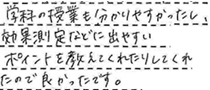 学科の授業も分かりやすかったし、
効果測定などに出やすい
ポイントを教えてくれたりしてくれ
たので良かったです。